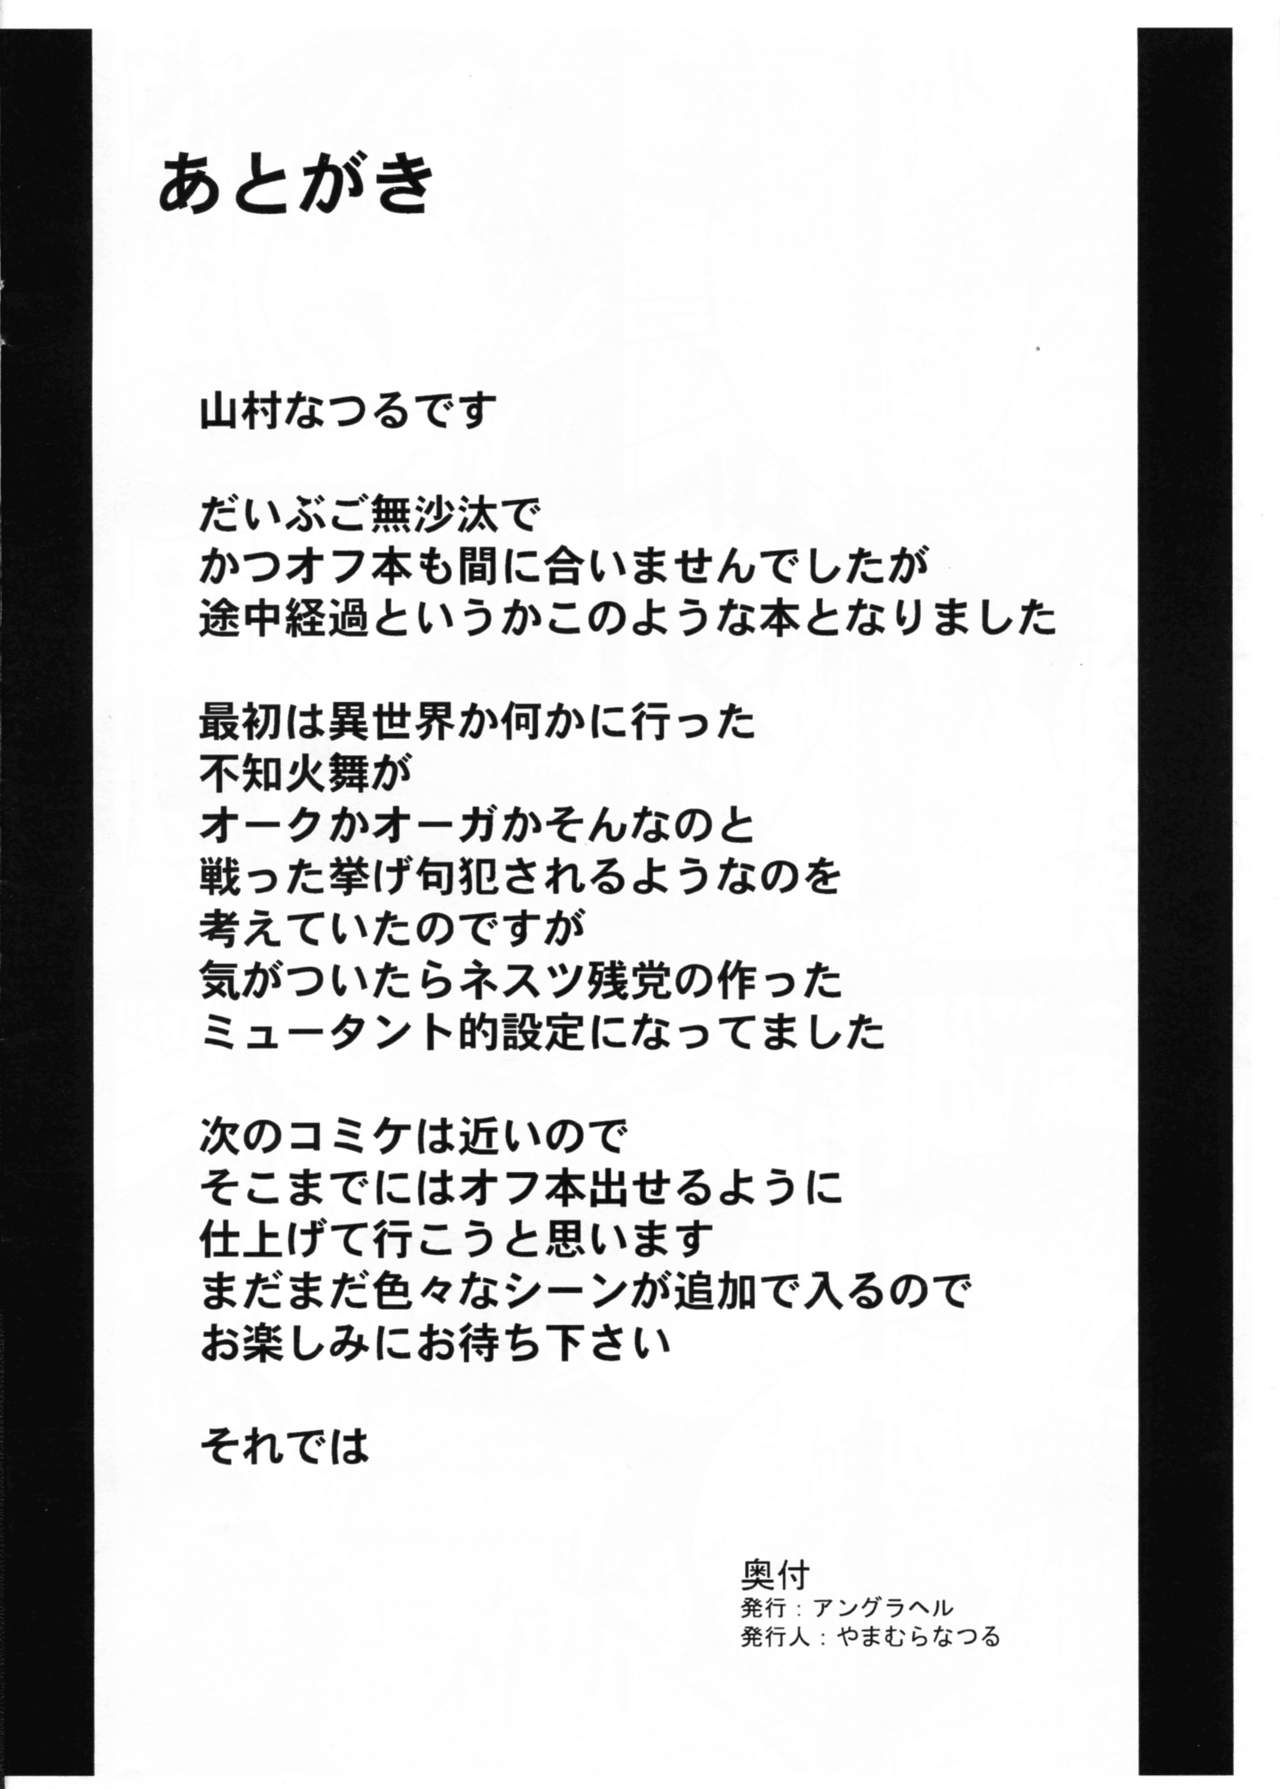 あとがき
山村なつるです
だいぶご無沙汰で
かつオフ本も間に合いませんでしたが
途中経過というかこのような本となりました
最初は異世界か何かに行った
不知火舞が
オークかオーガかそんなのと
戦った挙げ句犯されるようなのを
考えていたのですが
気がついたらネスツ残党の作った
ミュータント的設定になってました
次のコミケは近いので
そこまでにはオフ本出せるように
仕上げて行こうと思います
まだまだ色々なシーンが追加で入るので
お楽しみにお待ち下さい
それでは
奥付
発行：アングラヘル
発行人：やまむらなつる